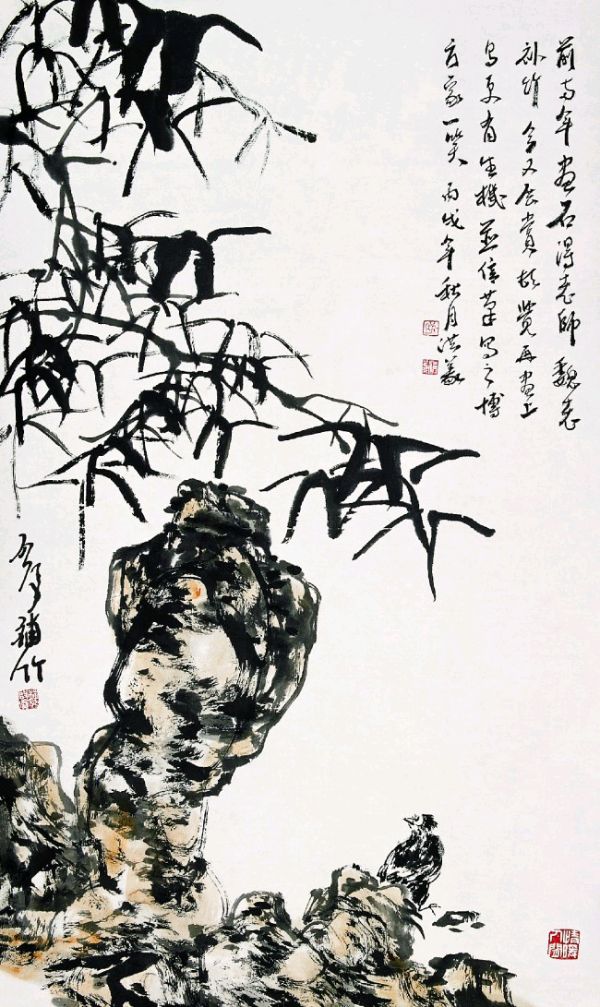 前两年画石得老师魏老
补竹 今又展赏 顿觉再画上
鸟更有生机 并信笔写之 博
方家一笑 丙戌年秋月 洪义
补竹